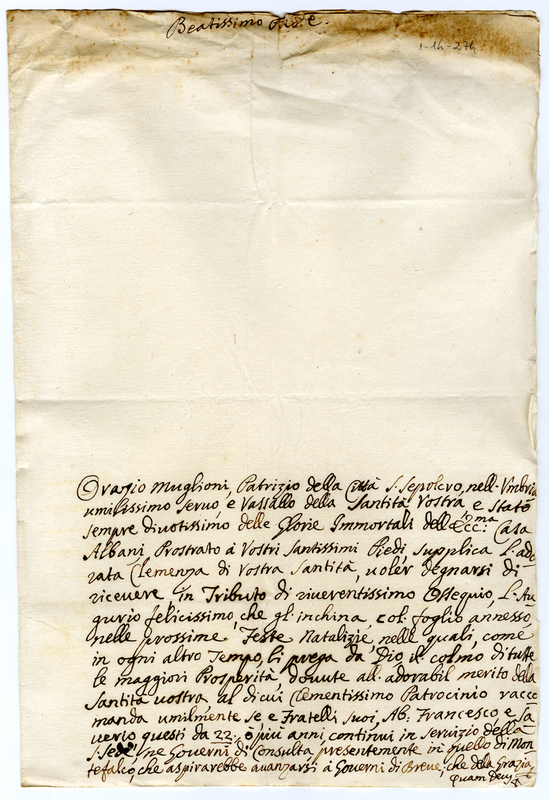 Beatissimo Pad.e
1-14-276
Orazio Muglioni, Patrizio della Città S. Sepolcro, nell. Vmbria
umilissimo servo, e Vassallo della Santità Vostra e Stato
sempre divotissimo delle Glorie Immortali dell Ecc:ma Casa
Albani Prostrato à Vostri Santissimi Piedi supplica L'ado
rata Clemenza di Vostra Santità, volér degnarsi di
ricevere in Tributo di riverentissimo Ossequio, L'Au
gurio felicissimo, che gl'inchina, col foglio annesso,
nelle prossime Feste Natalizie, nelle quali, come
in ogni altro Tempo, li prega da Dio il colmo di tutte
le maggiori Prosperità dovute all adorabil merito della
Santità vostra, al di cui Clementissimo Patrocinio racco
manda umilmente se e Fratelli suoi, Ab. Francesco, e Sa
verio questi da 22: ò più anni continui in servizio della
S. Sede, ne Governi di Consulta presentemente in quello di Mon
tefalco, che aspirarebbe avanzarsi à Governi di Breve, che della Grazia
Quam Deus